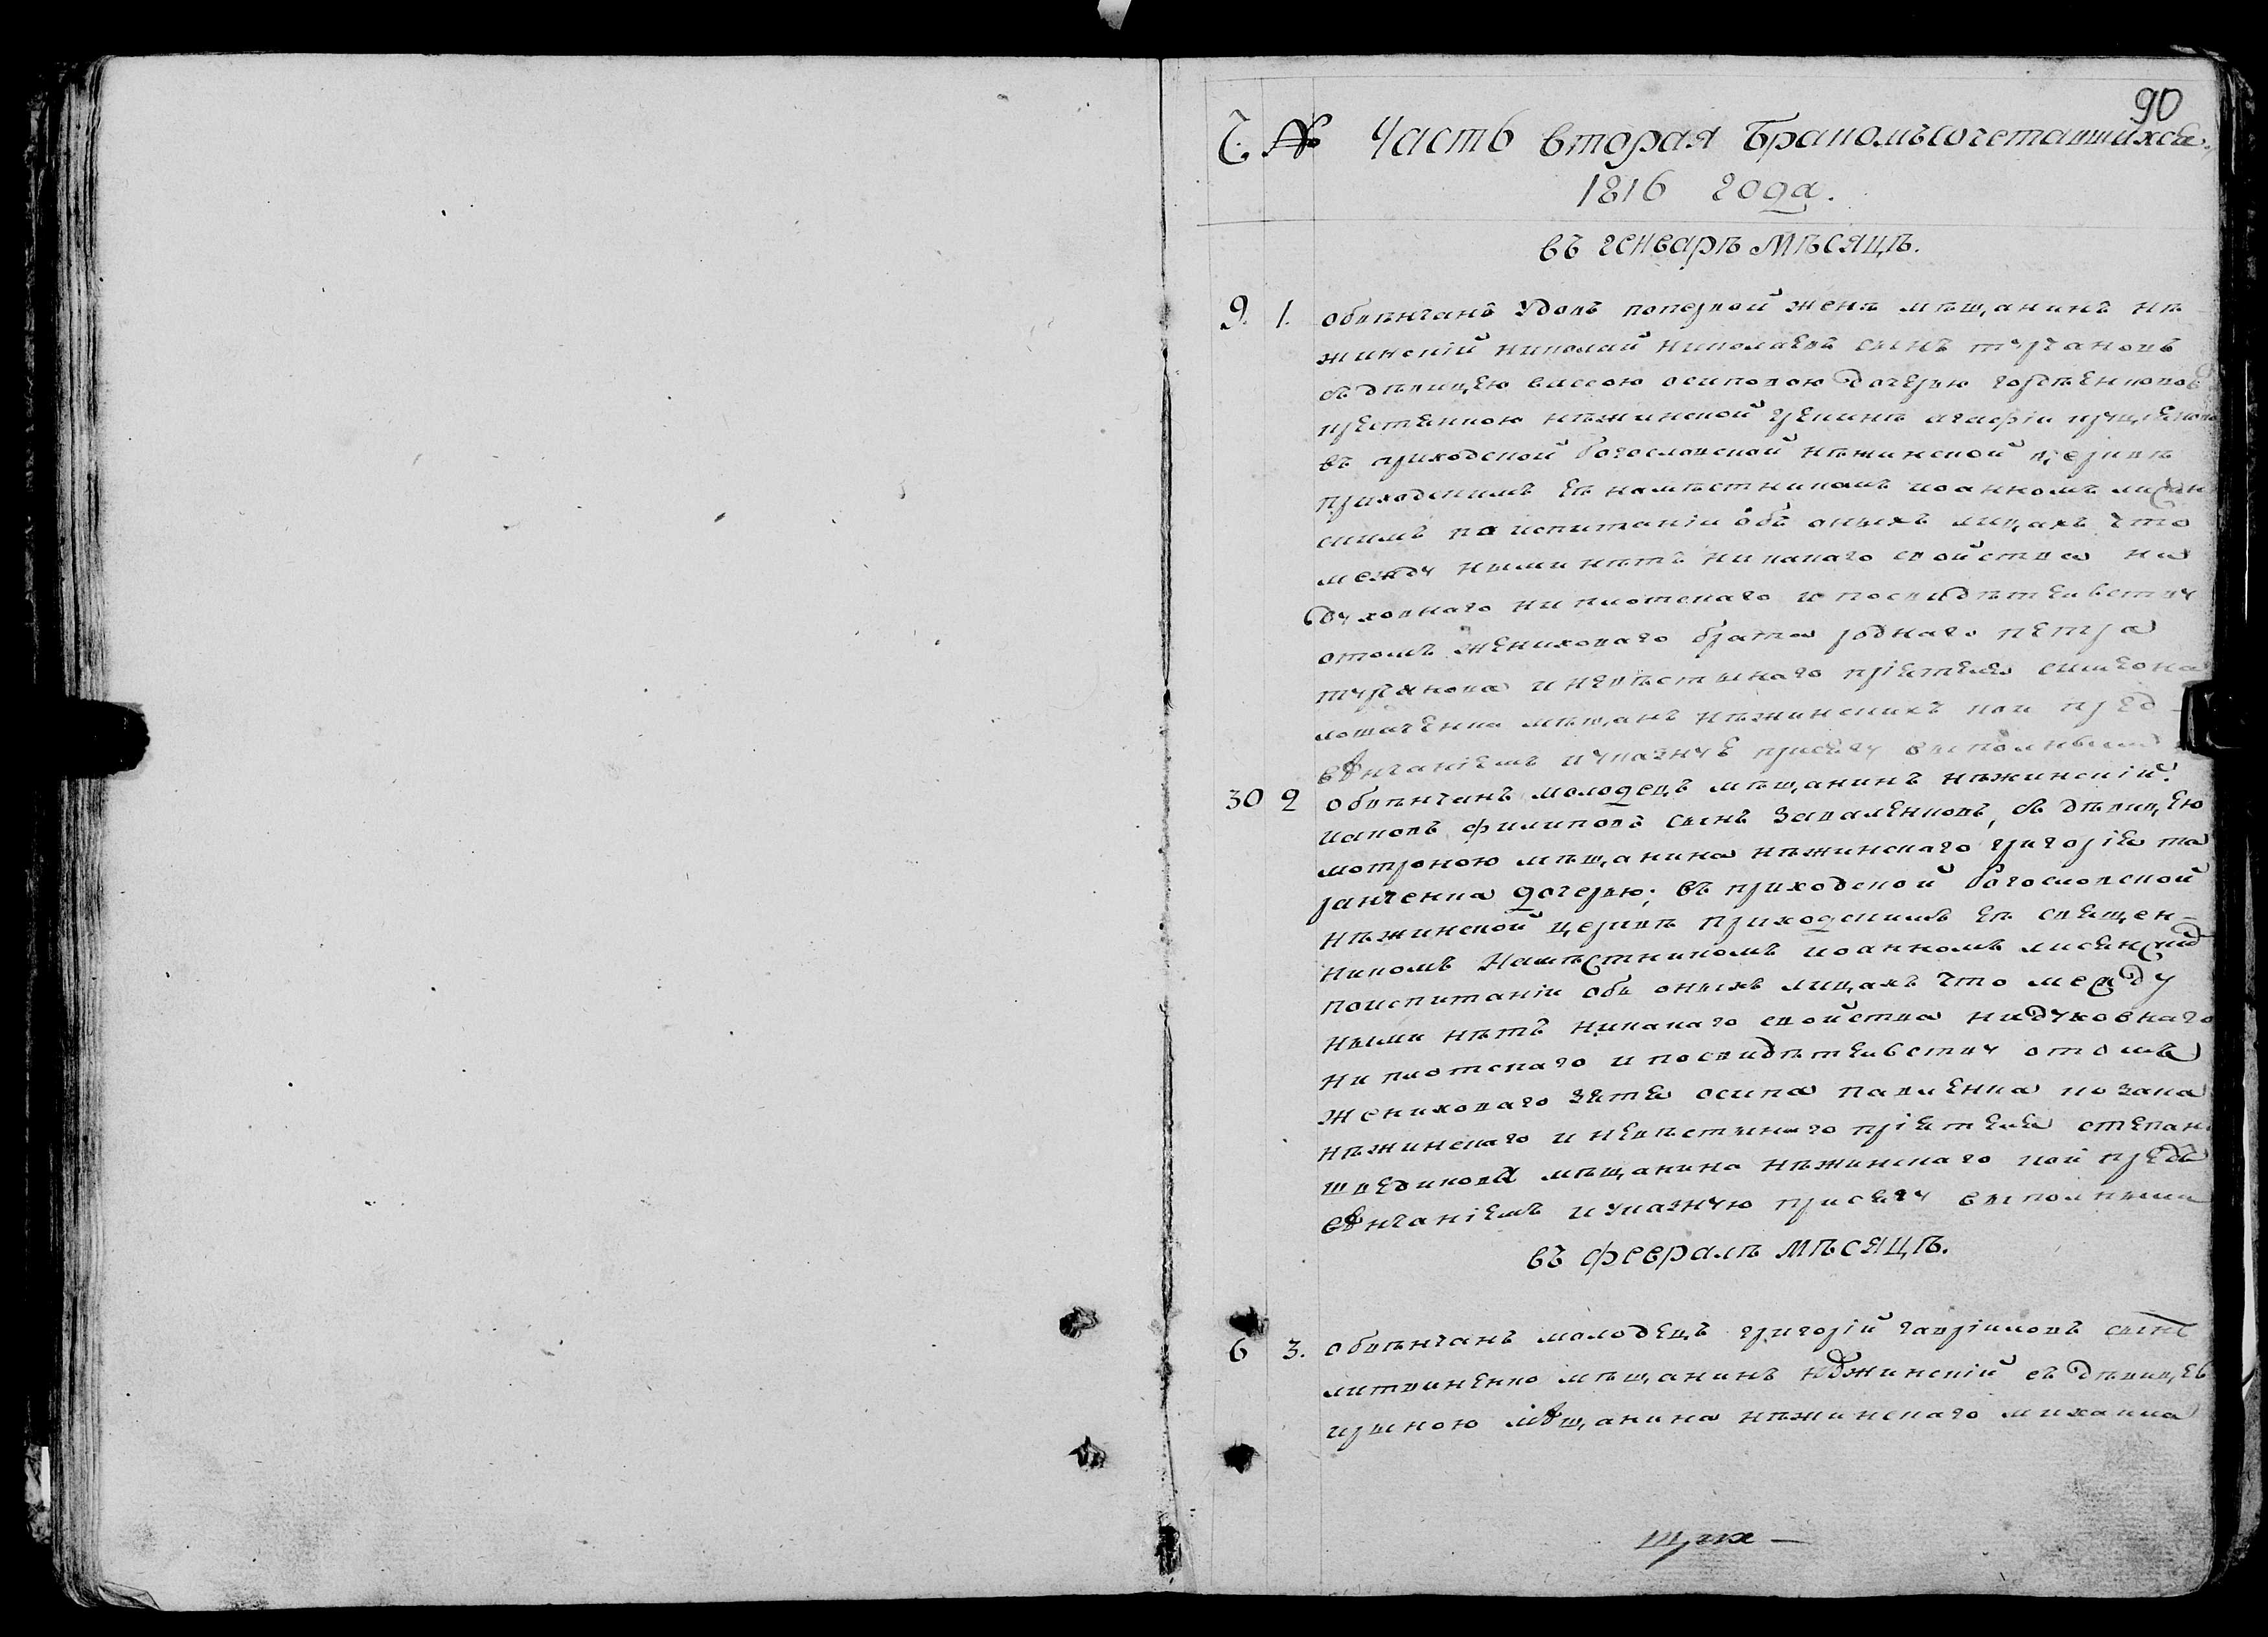 90
Ч. № Часть вторая Бракомъ сочетавшихся,
1816 года.
въ генварѣ мѣсяцѣ.
9. 1. обвѣнчанъ удовъ по первой женѣ мѣщанинъ нѣ
жинскій николай николаевъ сынъ
съ дѣвицею вассою осиповою дочерью
нѣжинской агафіи
въ приходской богословской нѣжинской церквѣ
приходскимъ еѣ намѣстникомъ иоанномъ лисѣн
скимъ по испитаніи объ оныхъ лицахъ что
между ными нѣтъ никакаго свойства ни
духовнаго ни плотскаго и по свидѣтельству
отомъ жениховаго брата роднаго петра
и невѣстынаго пріятеля симеона
мѣщанъ нѣжинскихъ кои пред
вѣнчаніемъ и указную присягу выполныли
30 2 обвѣнчанъ молодецъ мѣщанинъ нѣжинскій
иаковъ филиповъ сынъ заваленковъ, съ дѣвицею
мотроною мѣщанина нѣжинскаго григорія та
ранченка дочерью; въ приходской богословской
нѣжинской церквѣ приходскимъ еѣ священ-
никомъ намѣстникомъ иоанномъ лисѣнскимъ
по испитаніи объ оныхъ лицахъ что между
ными нѣтъ никакаго свойства ни духовнаго
ни плотскаго и по свидѣтельству отомъ
жениховаго зятя осипа павленка козака
нѣжинскаго и невѣстынаго пріятеля степана
шведикова мѣщанина нѣжинскаго кои предъ
вѣнчаніемъ и указную присягу выполныли
въ февралѣ мѣсяцѣ.
6 3. обвѣнчанъ молодецъ григорій гавріиловъ сынъ
литвиненко мѣщанинъ нѣжинскій съ дѣвицею
ириною мѣщанина нѣжинскаго михаила